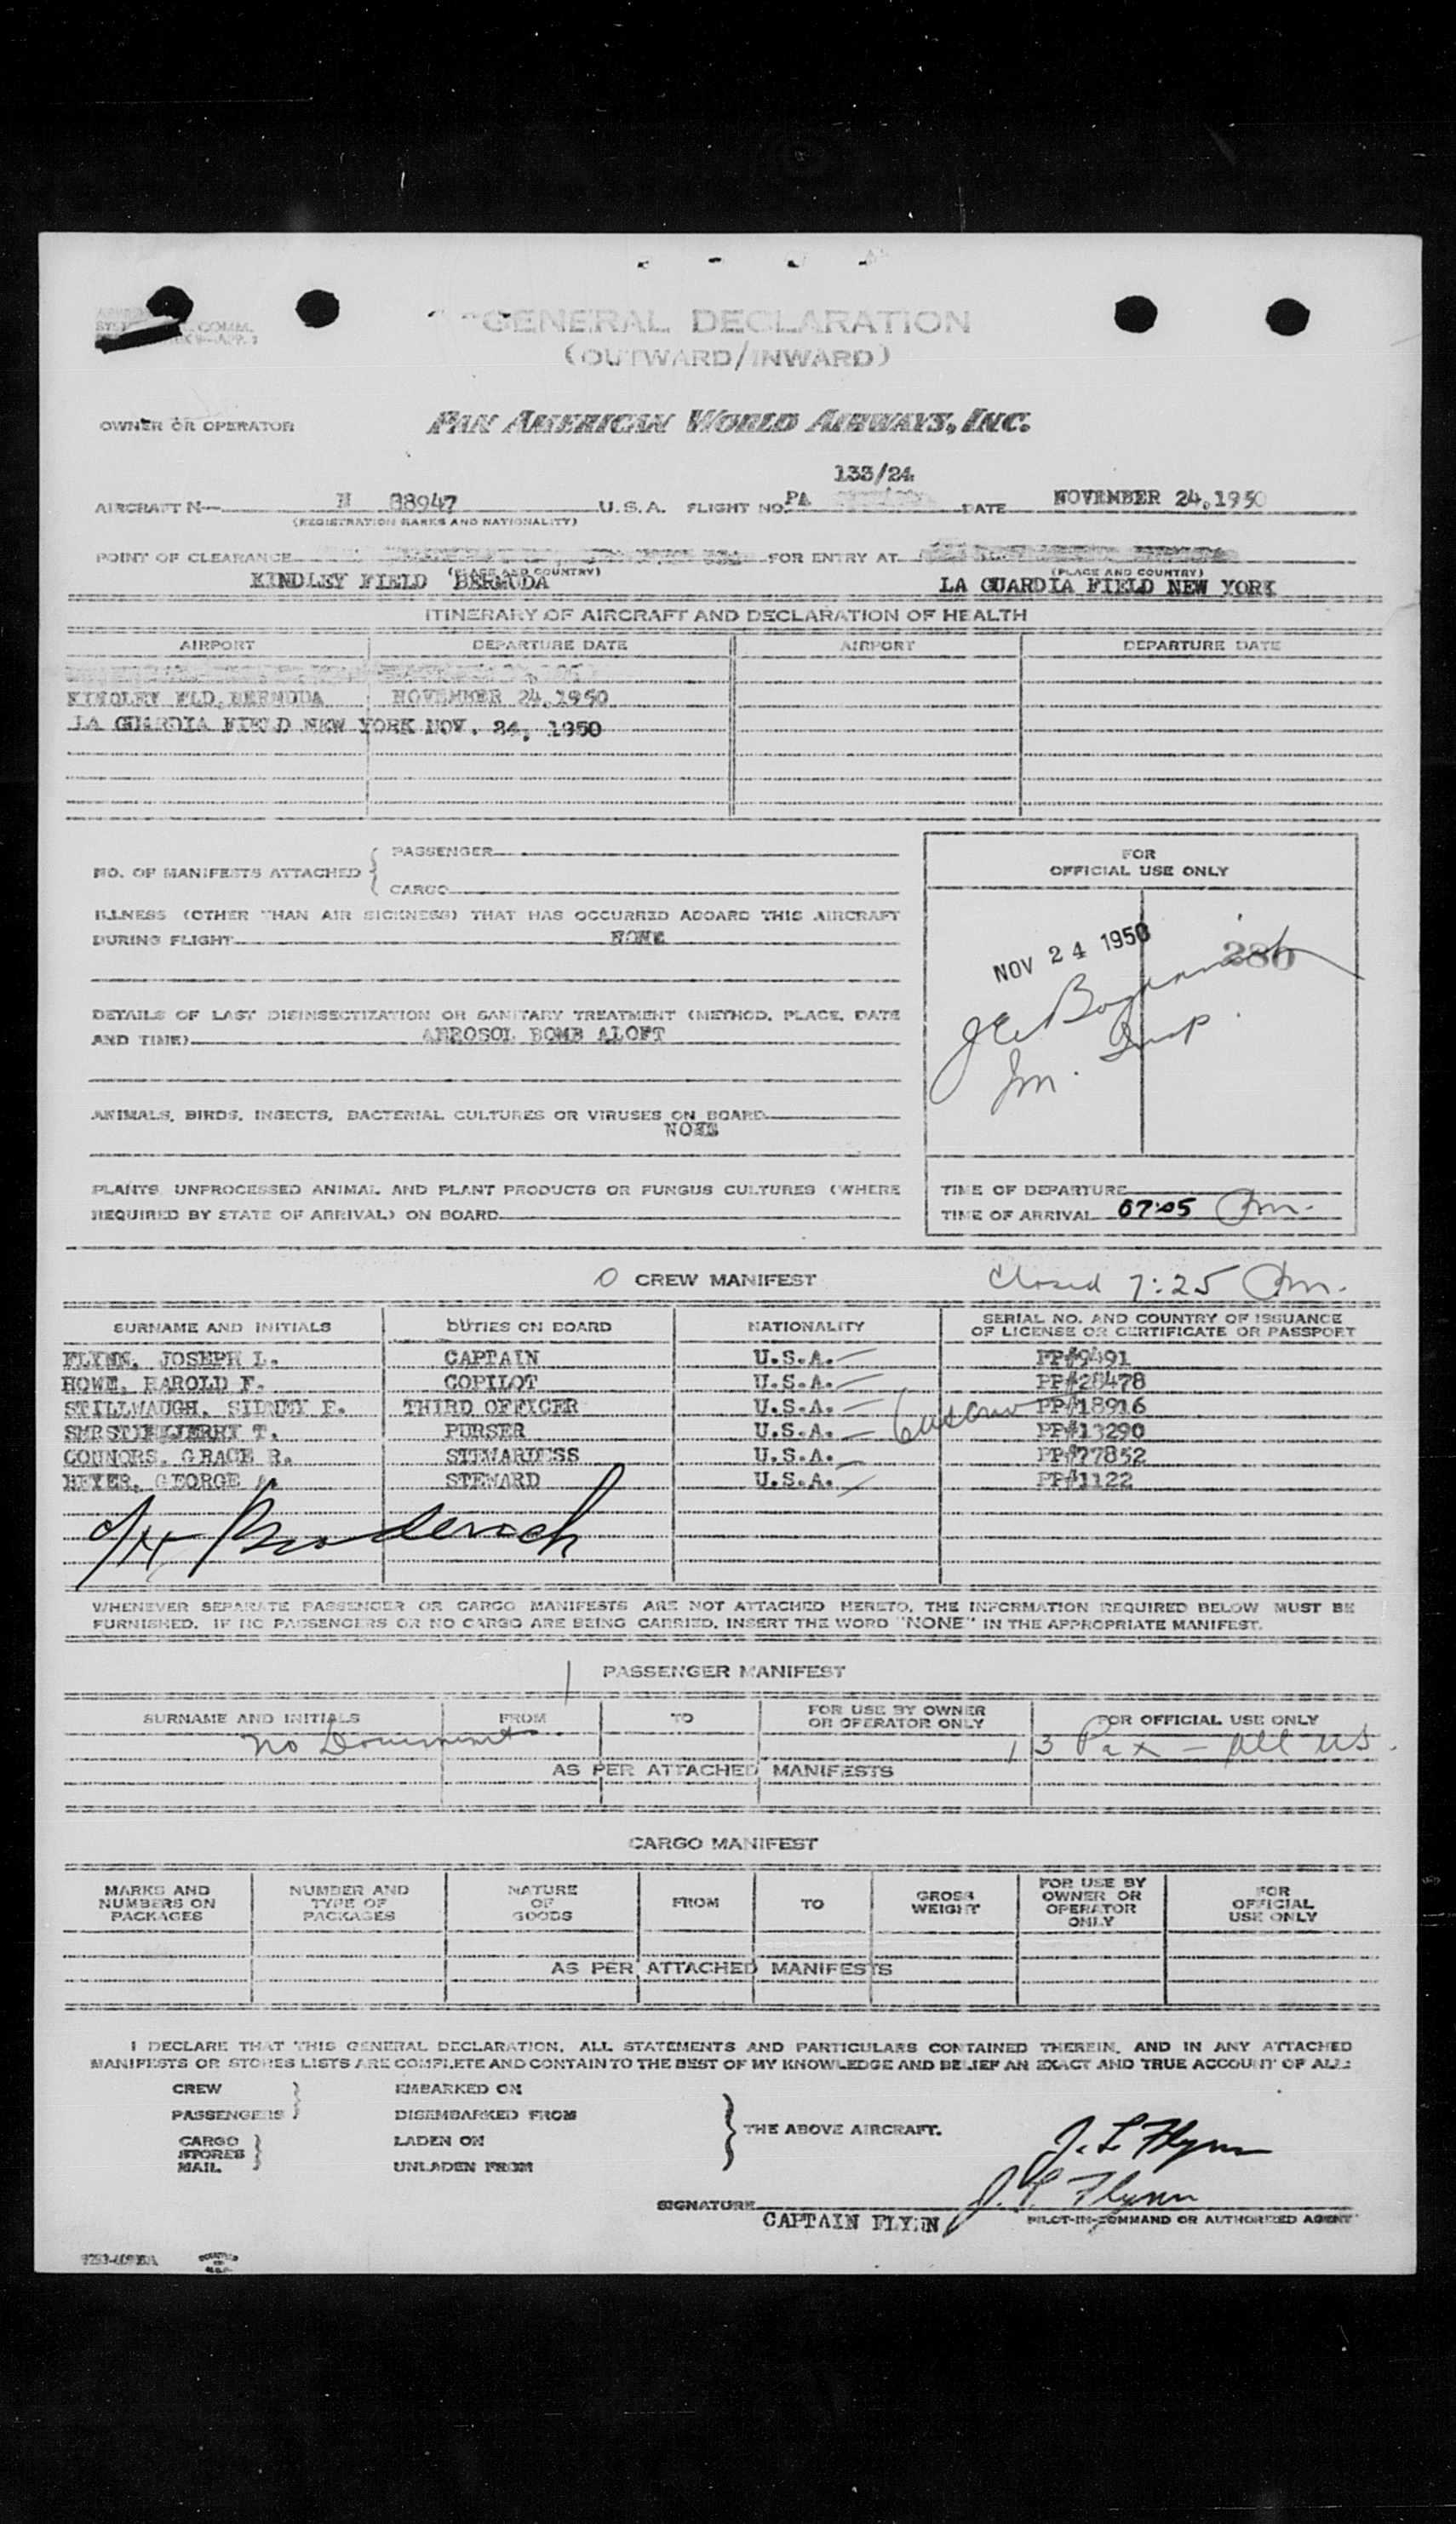 GENERAL DECLARATION
(OUTWARD/INWARD)
OWNER OR OPERATOR PAN AMERICAN WORLD AIRWAYS, INC.
133/24
AIRCRAFT N- N 88947 U.S.A. FLIGHT NO. PA DATE NOVEMBER 24,1950
(REGISTRATION MARKS AND NATIONALITY)
POINT OF CLEARANCE FOR ENTRY AT
(PLACE AND COUNTRY) (PLACE AND COUNTRY)
KINDLEY FIELD BERMUDA LA GUARDIA FIELD NEW YORK
ITINERARY OF AIRCRAFT AND DECLARATION OF HEALTH
AIRPORT DEPARTURE DATE AIRPORT DEPARTURE DATE
KINDLEY FLD, BERMUDA NOVEMBER 24,1950
LA GUARDIA FIELD NEW YORK NOV. 24, 1950
NO. OF MANIFESTS ATTACHED
PASSENGER
CARGO
ILLNESS (OTHER THAN AIR SICKNESS) THAT HAS OCCURRED ABOARD THIS AIRCRAFT
DURING FLIGHT NONE
DETAILS OF LAST DISINSECTIZATION OR SANITARY TREATMENT (METHOD, PLACE, DATE
AND TIME) AEROSOL BOMB ALOFT
ANIMALS, BIRDS, INSECTS, BACTERIAL CULTURES OR VIRUSES ON BOARD
NONE
PLANTS, UNPROCESSED ANIMAL AND PLANT PRODUCTS OR FUNGUS CULTURES (WHERE
REQUIRED BY STATE OF ARRIVAL) ON BOARD
FOR
OFFICIAL USE ONLY
NOV 24 1950
286
Im. Insp.
TIME OF DEPARTURE
TIME OF ARRIVAL 07:05 Pm.
0 CREW MANIFEST Closed 7:25 Pm.
SURNAME AND INITIALS DUTIES ON BOARD NATIONALITY SERIAL NO. AND COUNTRY OF ISSUANCE
OF LICENSE OR CERTIFICATE OR PASSPORT
FLYNN, JOSEPH L. CAPTAIN U.S.A. PP#9491
HOWE, HAROLD F. COPILOT U.S.A. PP#28478
STILLWAUGH, SIDNEY F. THIRD OFFICER U.S.A. PP#18916
JERRY T. PURSER U.S.A. PP#13290
CONNORS, GRACE R. STEWARDESS U.S.A. PP#77852
HEYER, GEORGE STEWARD U.S.A. PP#1122
WHENEVER SEPARATE PASSENGER OR CARGO MANIFESTS ARE NOT ATTACHED HERETO, THE INFORMATION REQUIRED BELOW MUST BE
FURNISHED. IF NO PASSENGERS OR NO CARGO ARE BEING CARRIED, INSERT THE WORD "NONE" IN THE APPROPRIATE MANIFEST.
PASSENGER MANIFEST
SURNAME AND INITIALS FROM TO FOR USE BY OWNER
OR OPERATOR ONLY FOR OFFICIAL USE ONLY
No Documents 13 Pax - All US.
AS PER ATTACHED MANIFESTS
CARGO MANIFEST
MARKS AND
NUMBERS ON
PACKAGES
NUMBER AND
TYPE OF
PACKAGES
NATURE
OF
GOODS
FROM
TO
GROSS
WEIGHT
FOR USE BY
OWNER OR
OPERATOR
ONLY
FOR
OFFICIAL
USE ONLY
AS PER ATTACHED MANIFESTS
I DECLARE THAT THIS GENERAL DECLARATION, ALL STATEMENTS AND PARTICULARS CONTAINED THEREIN, AND IN ANY ATTACHED
MANIFESTS OR STORES LISTS ARE COMPLETE AND CONTAIN TO THE BEST OF MY KNOWLEDGE AND BELIEF AN EXACT AND TRUE ACCOUNT OF ALL:
CREW EMBARKED ON
PASSENGERS DISEMBARKED FROM
THE ABOVE AIRCRAFT.
CARGO LADEN ON
STORES
MAIL UNLADEN FROM
J. L. Flynn
J. L. Flynn
SIGNATURE
CAPTAIN FLYNN PILOT-IN-COMMAND OR AUTHORIZED AGENT